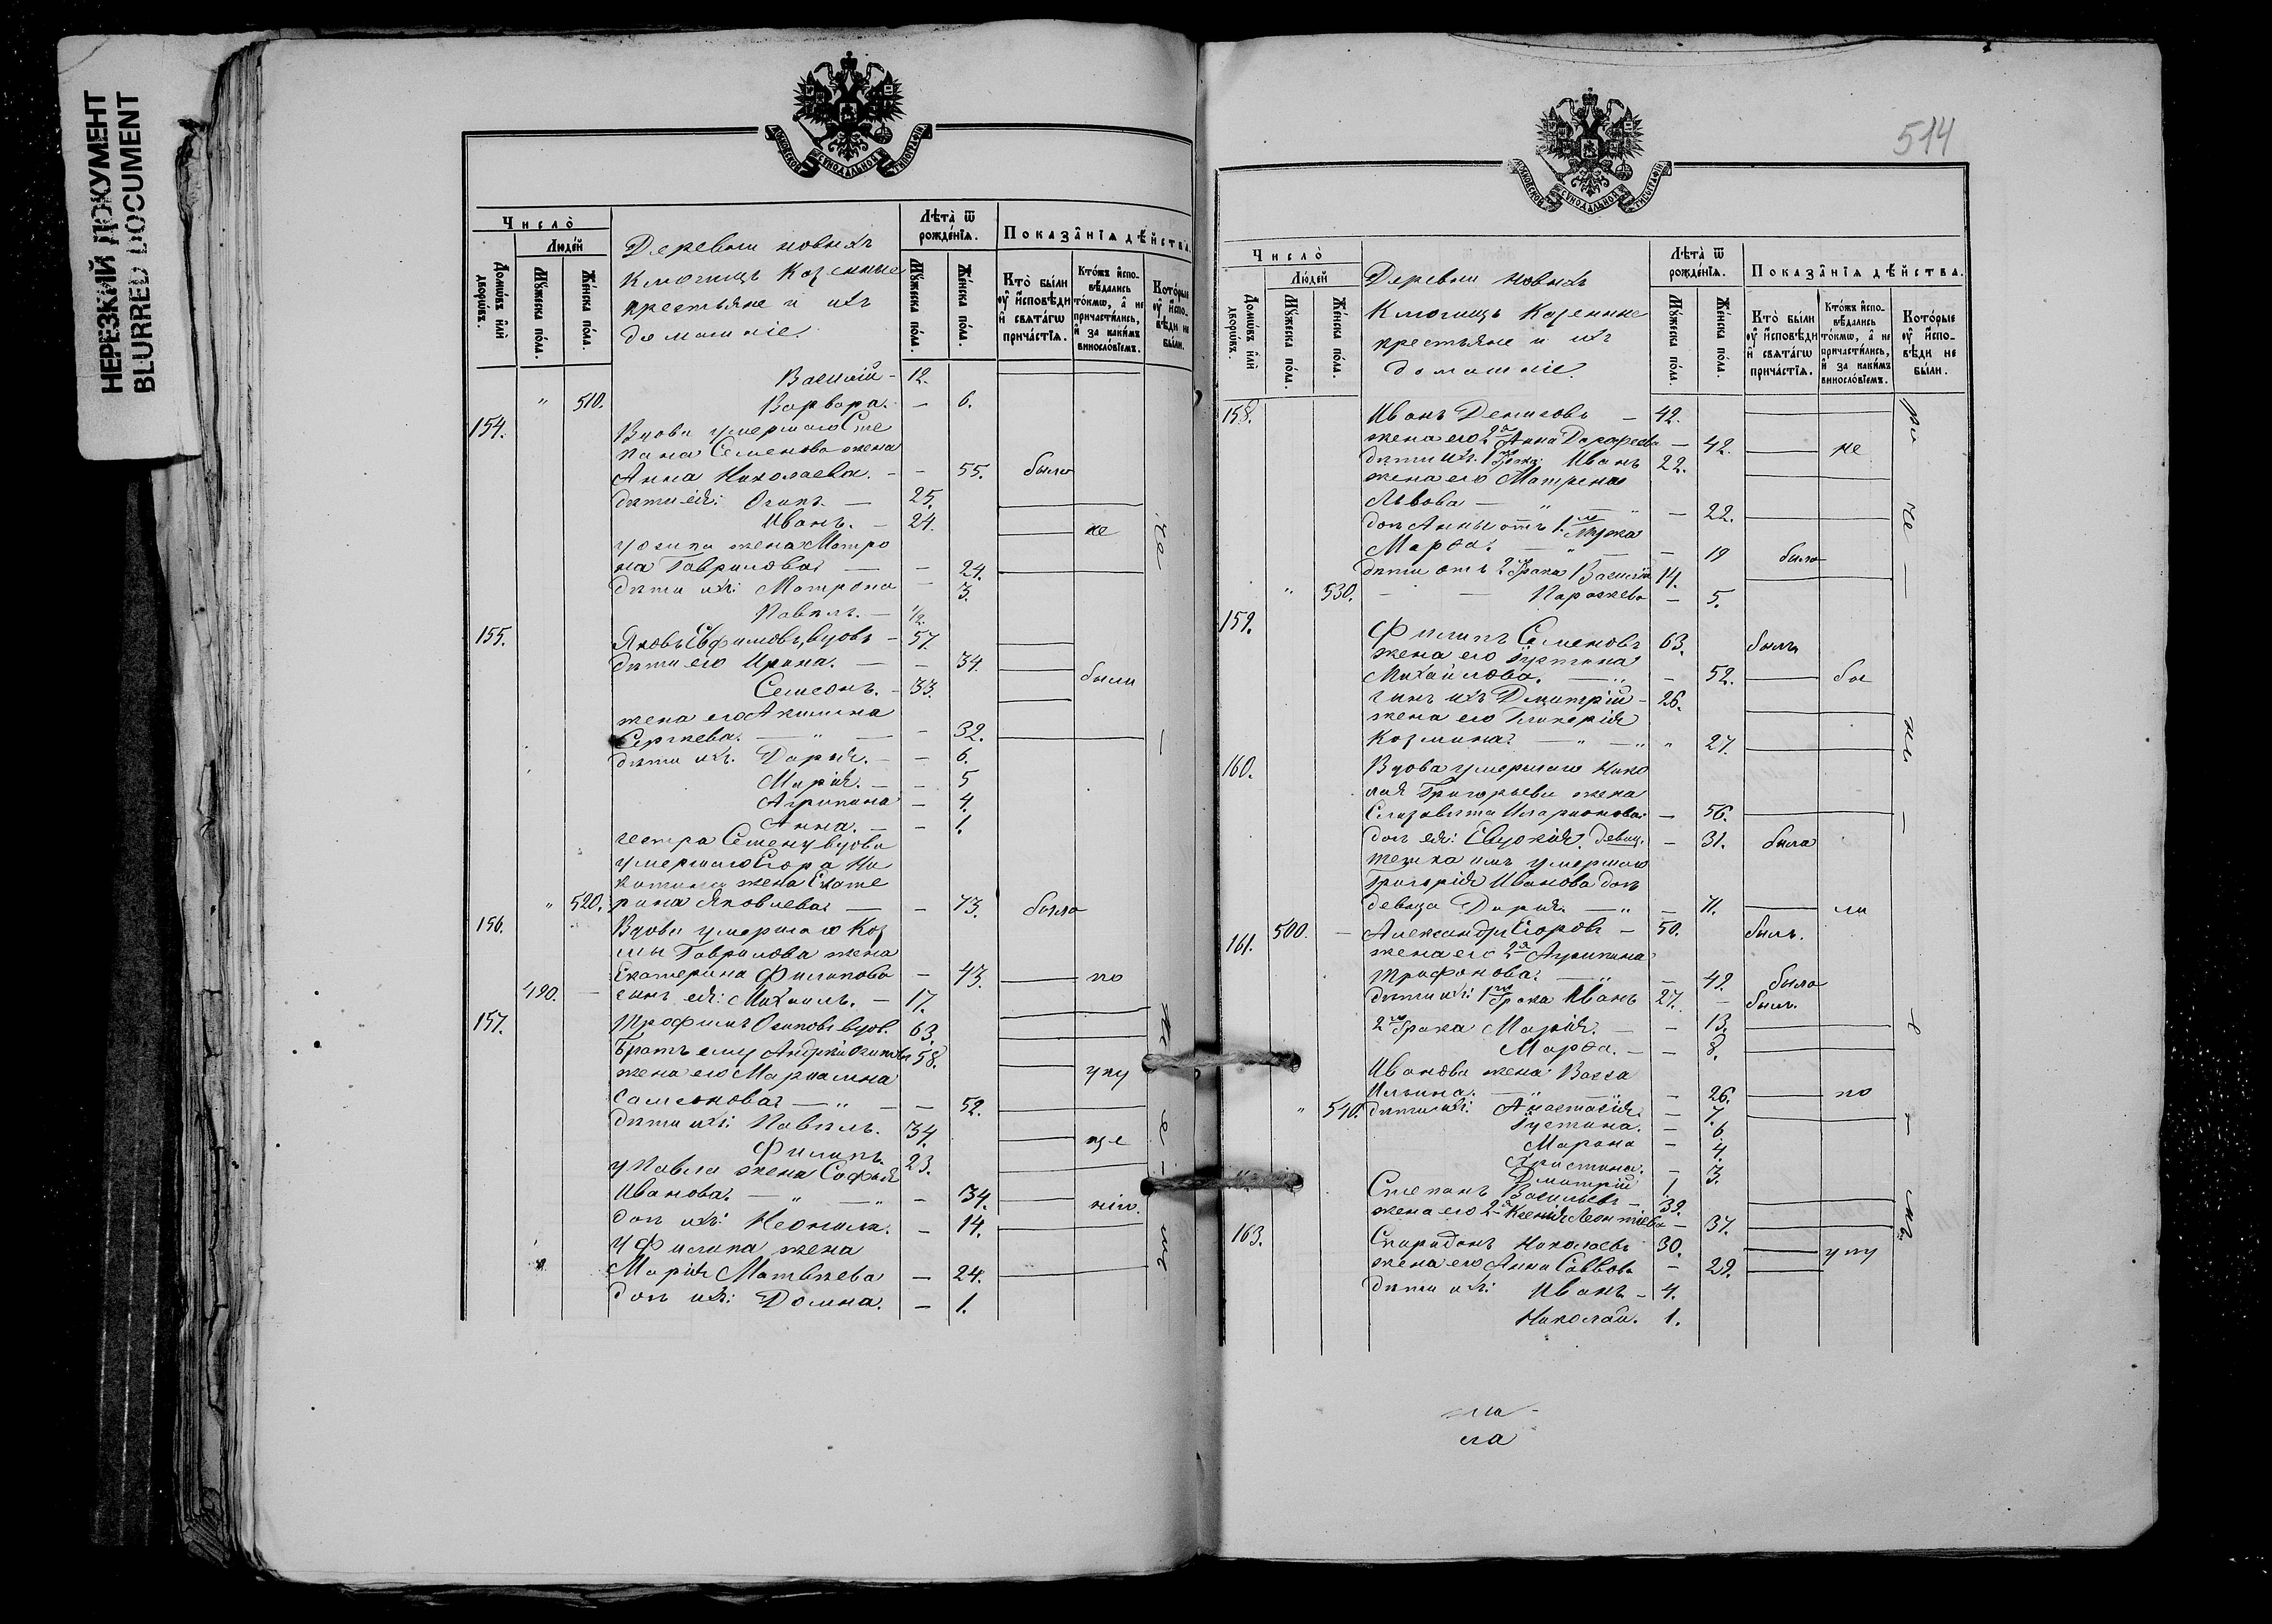 НЕРЕЗКИЙ ДОКУМЕНТ
BLURRED DOCUMENT
МОСКОВСКОЙ СѴНОДАЛЬНОЙ ТИПОГРАФІИ
Число̀
Люде́й
Домѡ́въ и҆лѝ дворѡ́въ.
Мꙋ́жеска по́ла.
Же́нска по́ла.
Деревни новыхъ
Ключищъ Казенные
крестьяне и ихъ
домашніе.
Лѣта̀ ѿ рожде́нїѧ.
Мꙋ́жеска по́ла.
Же́нска по́ла.
Показа̑нїѧ дѣ́йства.
Кто̀ бы́ли оу҆ и҆сповѣ́ди и҆ свѧта́гѡ прича́стїѧ.
Кто́жъ и҆спо-вѣ́дались то́кмѡ, а҆ не причасти́лись, и҆ за каки́мъ винослові́емъ.
Кото́рые оу҆ и҆спо-вѣ́ди не бы́ли.
Василій - 12.
" 510. Варвара. - 6.
154. Вдова умершаго Сте
пана Семенова жена
Анна Николаева. - - 55. была
дѣти ея: Осипъ. - 25.
Иванъ. - 24. не
у Осипа жена Матро
на Гаврилова - - 24.
дѣти ихъ: Матрона - 3.
Павелъ. - 1/2.
155. Яковъ Ефимовъ, вдовъ - 57.
дѣти его Ирина. - - 34.
были
Семенъ. - 33.
жена его Акилина
Сергѣева. - " - - 32.
дѣти ихъ. Дарья. - - 6.
Марія. - - 5
Агрипина - 4.
Анна. - - 1.
сестра Семену вдова
умершаго Егора Ни
китина жена Екате
" 520. рина Яковлева - - 73. была
156. Вдова умершаго Коз
мы Гаврилова жена
Екатерина Филипова - 43. по
490. - сынъ ея: Михаилъ. - 17.
157. Трофимъ Осиповъ вдов. 63.
Братъ ему Андрей Осиповъ 58.
жена его Маріамна упу
Самсонова - " - - 52.
дѣти ихъ: Павелъ. 34.
ще
Филипъ. 23.
у Павла жена Софья
Иванова. - " - " - 34. нію.
доч ихъ: Неонила. - 14.
у Филипа жена
Марія Матвѣева - 24.
доч ихъ: Домна. - 1.
514
МОСКОВСКОЙ СѴНОДАЛЬНОЙ ТИПОГРАФІИ
Число̀
Люде́й
Домѡ́въ и҆лѝ дворѡ́въ.
Мꙋ́жеска по́ла.
Же́нска по́ла.
Деревни новыхъ
Ключищъ Казенные
крестьяне и ихъ
домашніе.
Лѣта̀ ѿ рожде́нїѧ.
Мꙋ́жеска по́ла.
Же́нска по́ла.
Показа̑нїѧ дѣ́йства.
Кто̀ бы́ли оу҆ и҆сповѣ́ди и҆ свѧта́гѡ прича́стїѧ.
Кто́жъ и҆спо-вѣ́дались то́кмѡ, а҆ не причасти́лись, и҆ за каки́мъ винослові́емъ.
Кото́рые оу҆ и҆спо-вѣ́ди не бы́ли.
158. Иванъ Денисовъ - 42.
жена его 2я Анна Дорофеева - 42. не
дѣти ихъ. 1го брака: Иванъ 22.
жена его Матрена
Львова - " - " - 22.
доч Анны отъ 1го мужа
Марѳа. - " - 19 была
дѣти отъ 2го брака Василій 14.
" 530. - - Параскева - 5.
159. Филипъ Семеновъ 63. былъ
жена его Іустина
Михайлова. - " - 52. бы
сынъ ихъ Дмитрій - 26.
жена его Гликерія
Козмина - " - " " 27.
160. Вдова умершаго Нико
лая Григорьева жена
Елизавета Иларионова - 56.
доч ея: Евдокія. девиц. - 31. была
тетка имъ умершаго
Григорія Иванова доч
девица Дарія. - " - 71. ли
161. 500. - Александръ Егоровъ - 50. былъ.
жена его 2я Агрипина
Трифонова. - " - 49. была
дѣти ихъ: 1го брака Иванъ 27. - былъ.
2го брака Марія. - - 13.
Марѳа. - - 8.
Иванова жена Васса
Ильина. - " - " - 26. по
" 540. дѣти ихъ: Анастасія. - 7.
Іустина. - 6
Марина - 4.
Христина. - 3.
Дмитрій 1.
Степанъ Васильевъ - 39.
жена его 2я Ксенія Леонтіева - 37.
163. Спиридонъ Николаевъ 30. упу
жена его Анна Саввова - 29.
дѣти ихъ: Иванъ - 4.
Николай. 1.
ла